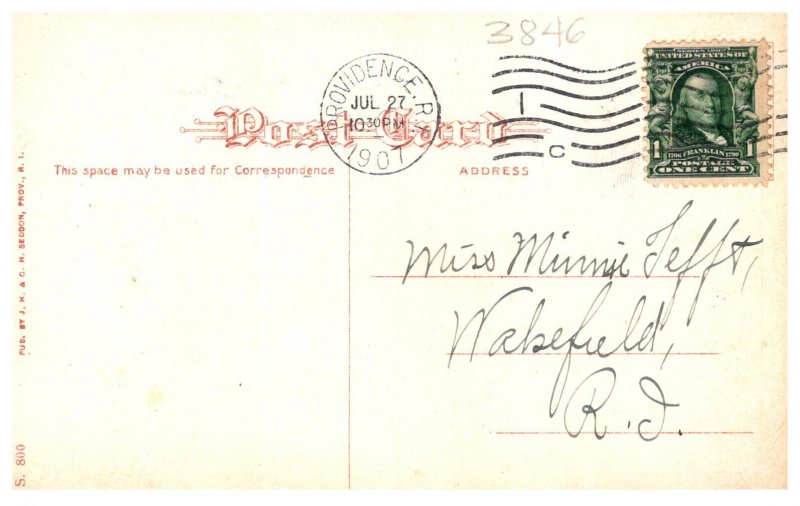 3846
PROVIDENCE, R.I.
JUL 27
10 30 PM
1907
1
C
SERIES 1902
UNITED STATES OF
AMERICA
1706 FRANKLIN 1790
1 POSTAGE 1
ONE CENT
Post Card
This space may be used for Correspondence
ADDRESS
Miss Minnie Tefft,
Wakefield,
R.I.
PUB. BY J. M. & C. H. SEDDON, PROV., R. I.
S. 800